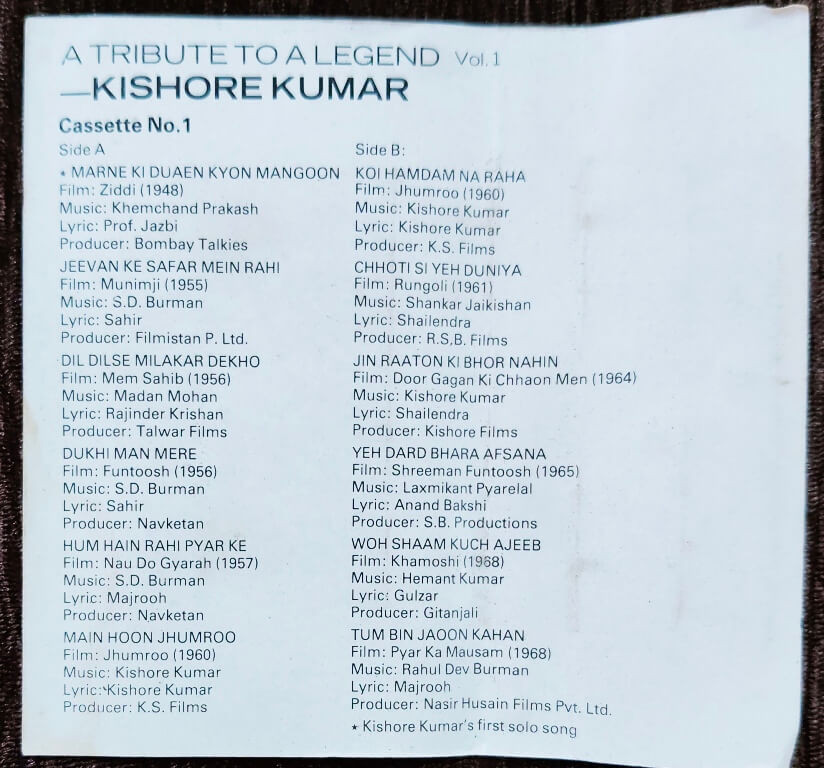 A TRIBUTE TO A LEGEND Vol. 1
—KISHORE KUMAR
Cassette No.1
Side A
* MARNE KI DUAEN KYON MANGOON
Film: Ziddi (1948)
Music: Khemchand Prakash
Lyric: Prof. Jazbi
Producer: Bombay Talkies
JEEVAN KE SAFAR MEIN RAHI
Film: Munimji (1955)
Music: S.D. Burman
Lyric: Sahir
Producer: Filmistan P. Ltd.
DIL DILSE MILAKAR DEKHO
Film: Mem Sahib (1956)
Music: Madan Mohan
Lyric: Rajinder Krishan
Producer: Talwar Films
DUKHI MAN MERE
Film: Funtoosh (1956)
Music: S.D. Burman
Lyric: Sahir
Producer: Navketan
HUM HAIN RAHI PYAR KE
Film: Nau Do Gyarah (1957)
Music: S.D. Burman
Lyric: Majrooh
Producer: Navketan
MAIN HOON JHUMROO
Film: Jhumroo (1960)
Music: Kishore Kumar
Lyric: Kishore Kumar
Producer: K.S. Films
Side B:
KOI HAMDAM NA RAHA
Film: Jhumroo (1960)
Music: Kishore Kumar
Lyric: Kishore Kumar
Producer: K.S. Films
CHHOTI SI YEH DUNIYA
Film: Rungoli (1961)
Music: Shankar Jaikishan
Lyric: Shailendra
Producer: R.S,B. Films
JIN RAATON KI BHOR NAHIN
Film: Door Gagan Ki Chhaon Men (1964)
Music: Kishore Kumar
Lyric: Shailendra
Producer: Kishore Films
YEH DARD BHARA AFSANA
Film: Shreeman Funtoosh (1965)
Music: Laxmikant Pyarelal
Lyric: Anand Bakshi
Producer: S.B. Productions
WOH SHAAM KUCH AJEEB
Film: Khamoshi (1968)
Music: Hemant Kumar
Lyric: Gulzar
Producer: Gitanjali
TUM BIN JAOON KAHAN
Film: Pyar Ka Mausam (1968)
Music: Rahul Dev Burman
Lyric: Majrooh
Producer: Nasir Husain Films Pvt. Ltd.
* Kishore Kumar's first solo song